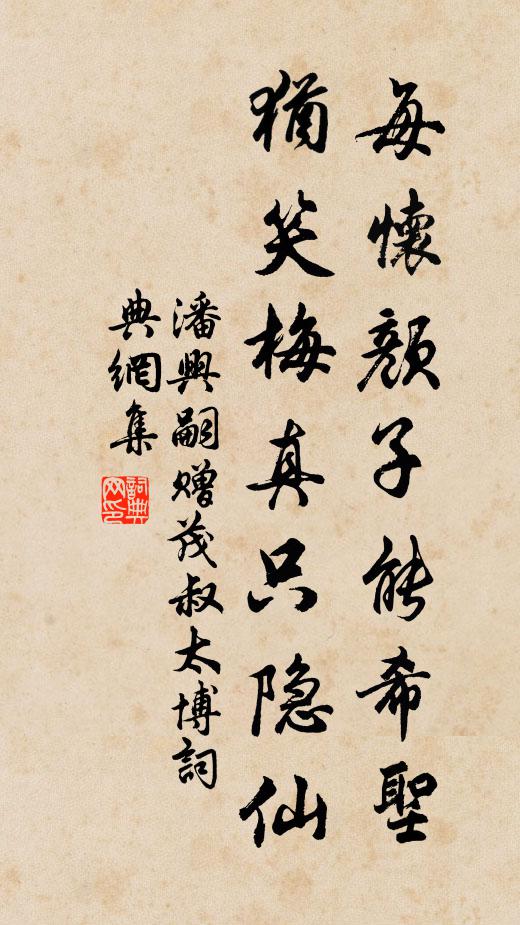 每懷顏子能希聖
猶笑梅真只隐仙
潘興嗣贈茂叔太博詞
典網集
詞典
网印